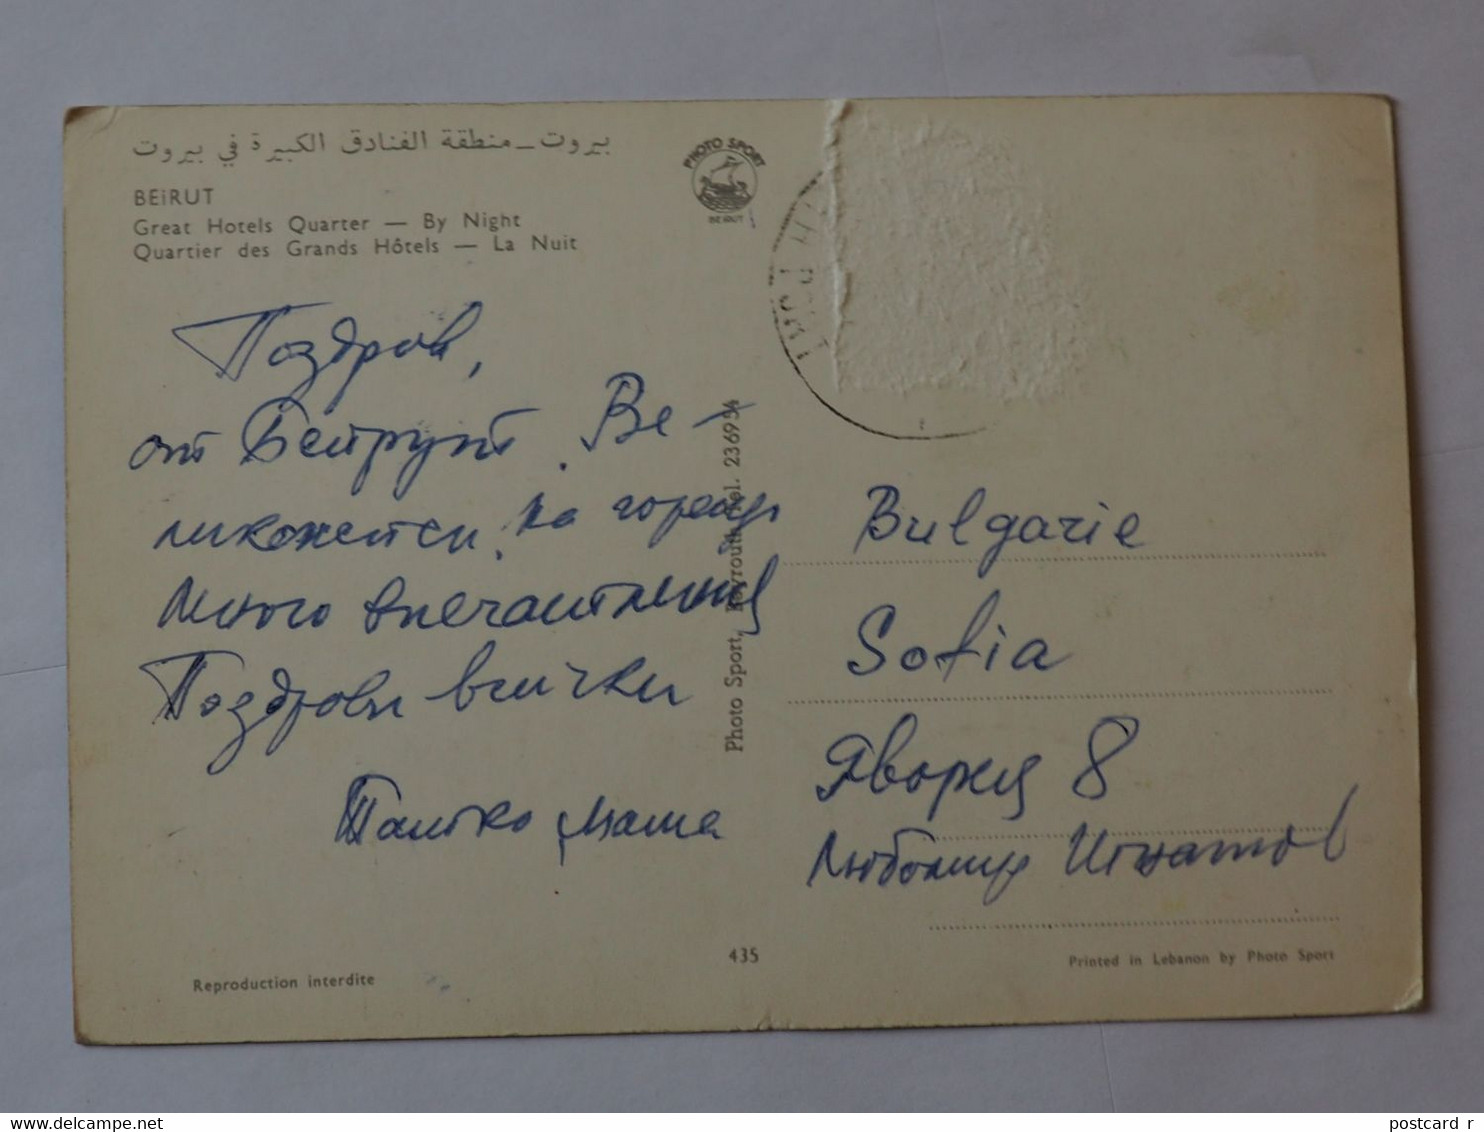 بيروت – منطقة الفنادق الكبيرة في بيروت
BEiRUT
Great Hotels Quarter — By Night
Quartier des Grands Hôtels — La Nuit
PHOTO SPORT
BEiRUT
Поздрав,
от Бейрут. Ве-
ликолепен
много впечатления
Поздрави всички
Маша
Photo Sport, Beyrouth, Tel. 236954
Bulgarie
Sofia
Яворец 8
Любомир Игнатов
435
Reproduction interdite
Printed in Lebanon by Photo Sport
postcard_r